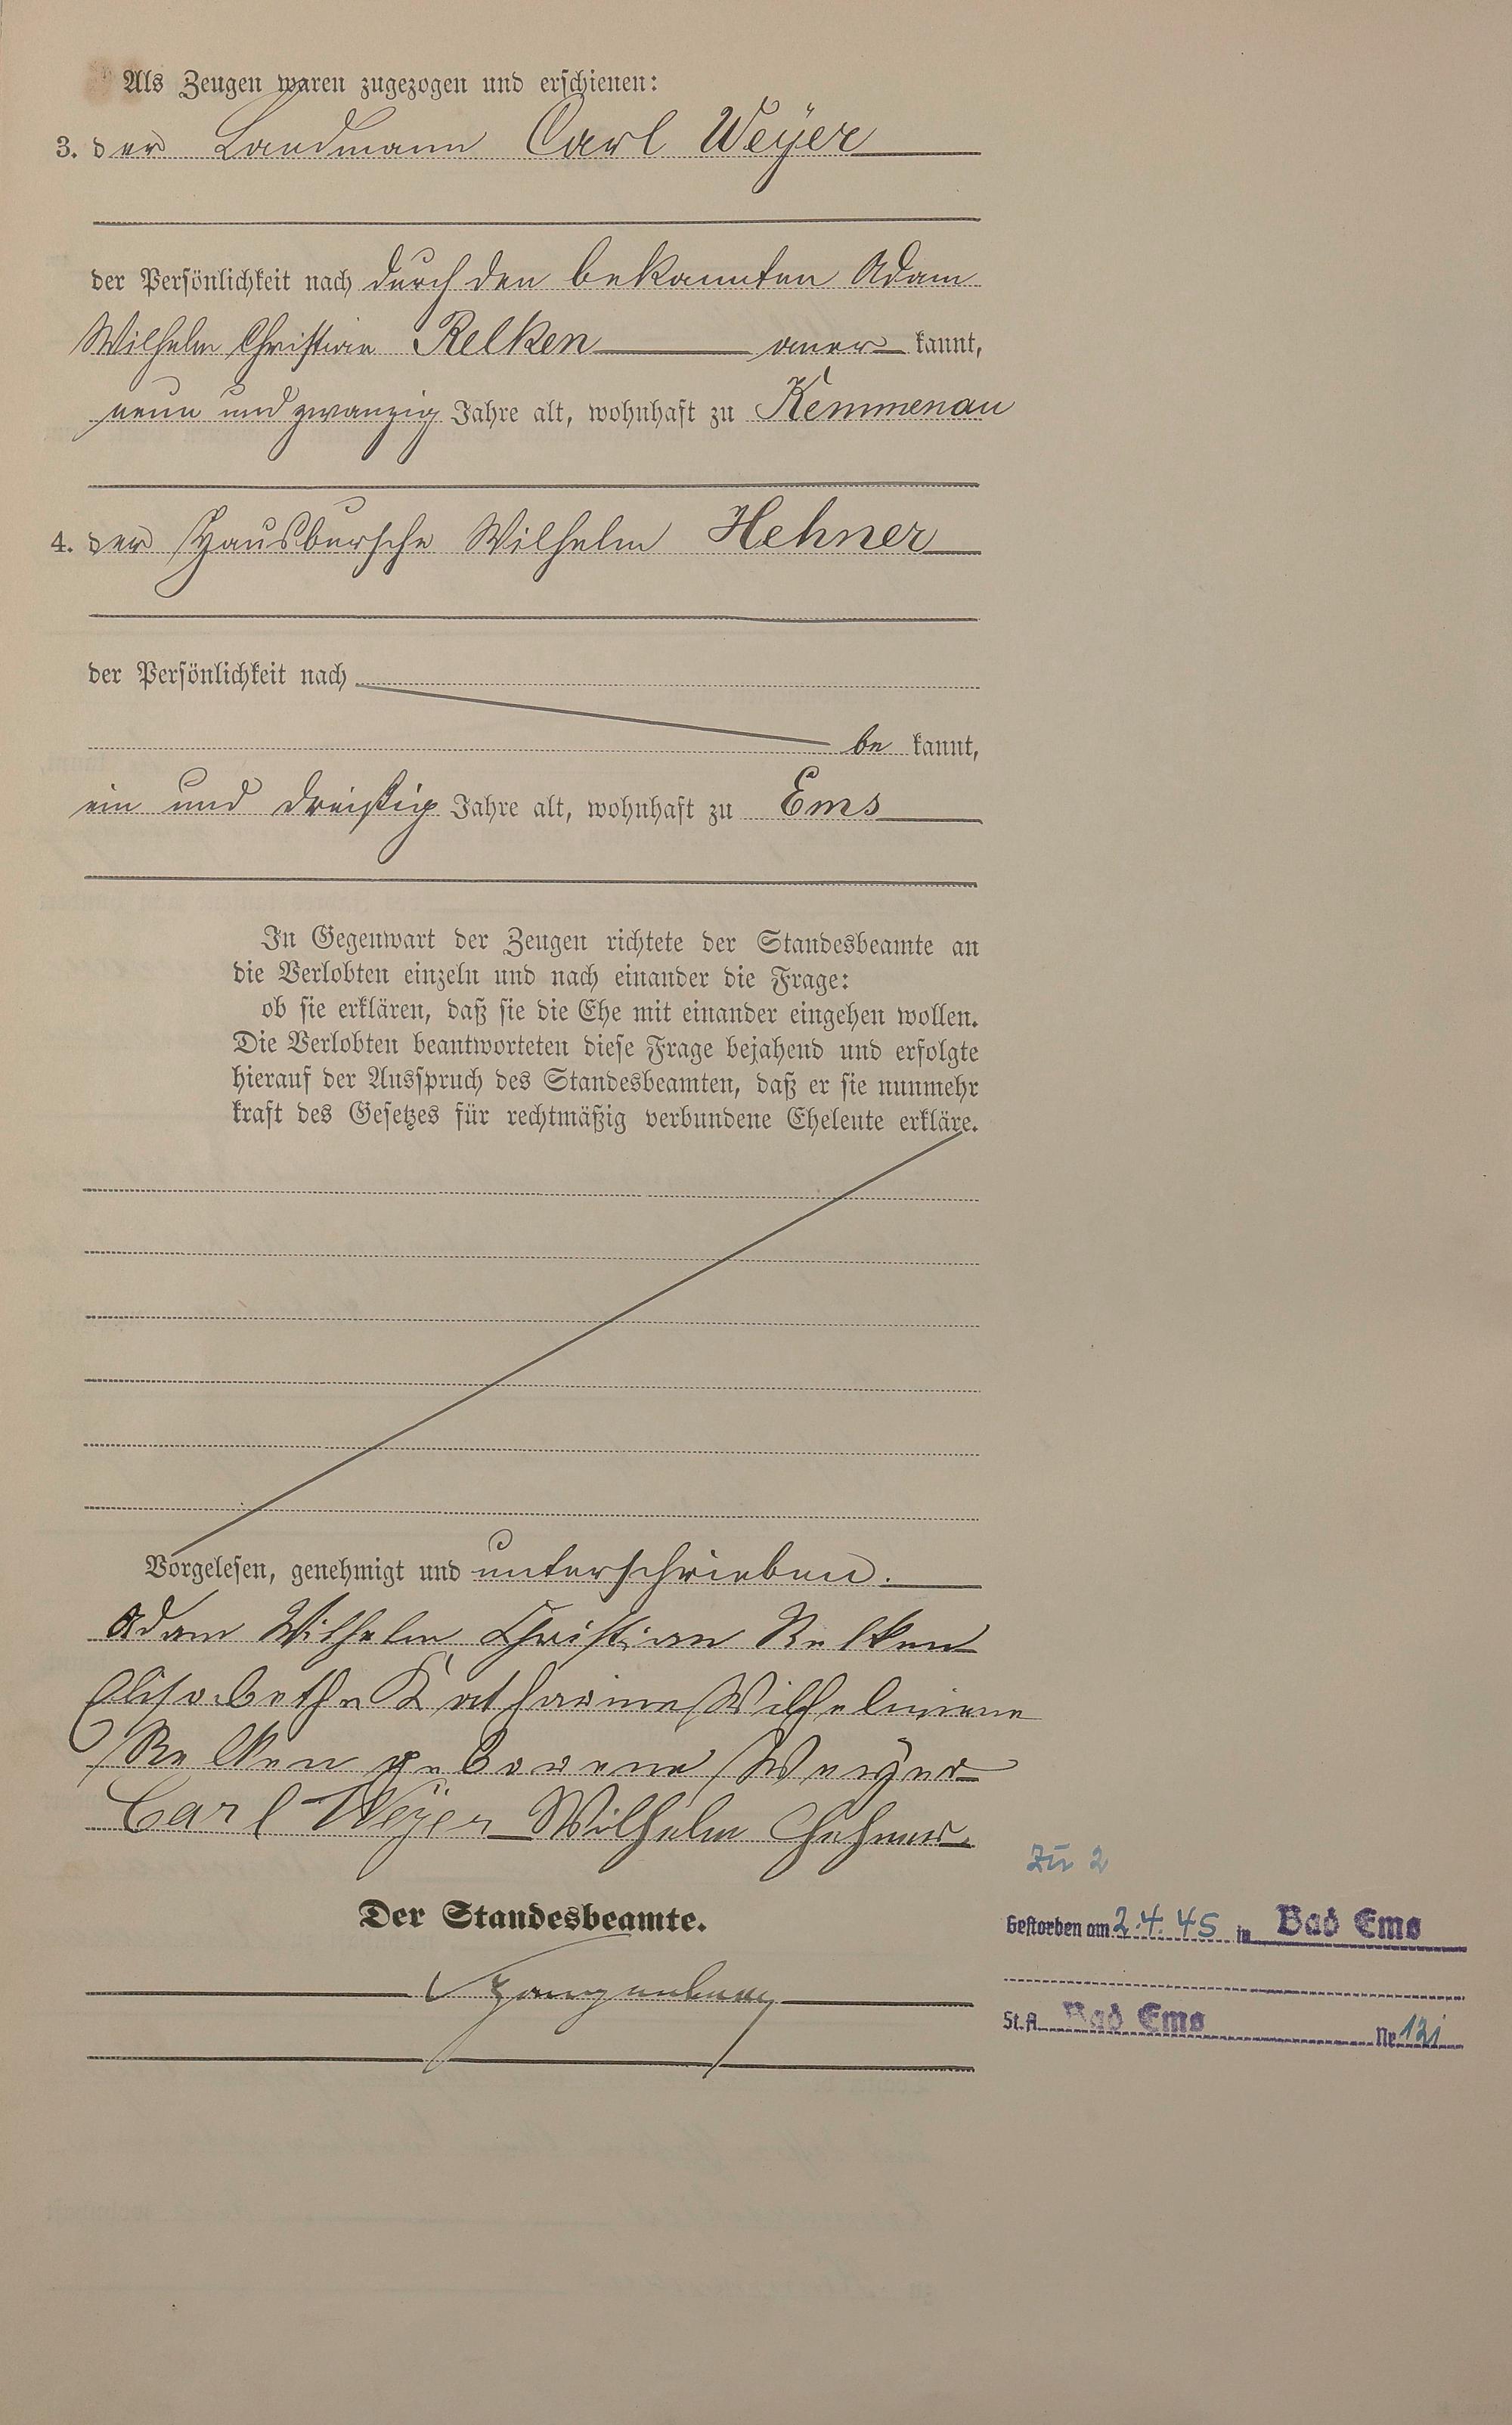 Als Zeugen waren zugezogen und erschienen:
3. der Landmann Carl Weÿer
der Persönlichkeit nach durch den bekannten Adam
Wilhelm Christian Relken aner kannt,
neun und zwanzig Jahre alt, wohnhaft zu Kemmenau
4. der Hausbursche Wilhelm Hehner
der Persönlichkeit nach
be kannt,
ein und dreißig Jahre alt, wohnhaft zu Ems
In Gegenwart der Zeugen richtete der Standesbeamte an
die Verlobten einzeln und nach einander die Frage:
ob sie erklären, daß sie die Ehe mit einander eingehen wollen.
Die Verlobten beantworteten diese Frage bejahend und erfolgte
hierauf der Ausspruch des Standesbeamten, daß er sie nunmehr
kraft des Gesetzes für rechtmäßig verbundene Eheleute erkläre.
Vorgelesen, genehmigt und unterschrieben.
Adam Wilhelm Christian Relken
Elisabethe Katharine Wilhelmine
Relken geborene Weÿer
Carl Weÿer Wilhelm Hehner.
Der Standesbeamte.
Zu 2
Gestorben am 2.4.45 in Bad Ems
St.A. Bad Ems Nr. 131